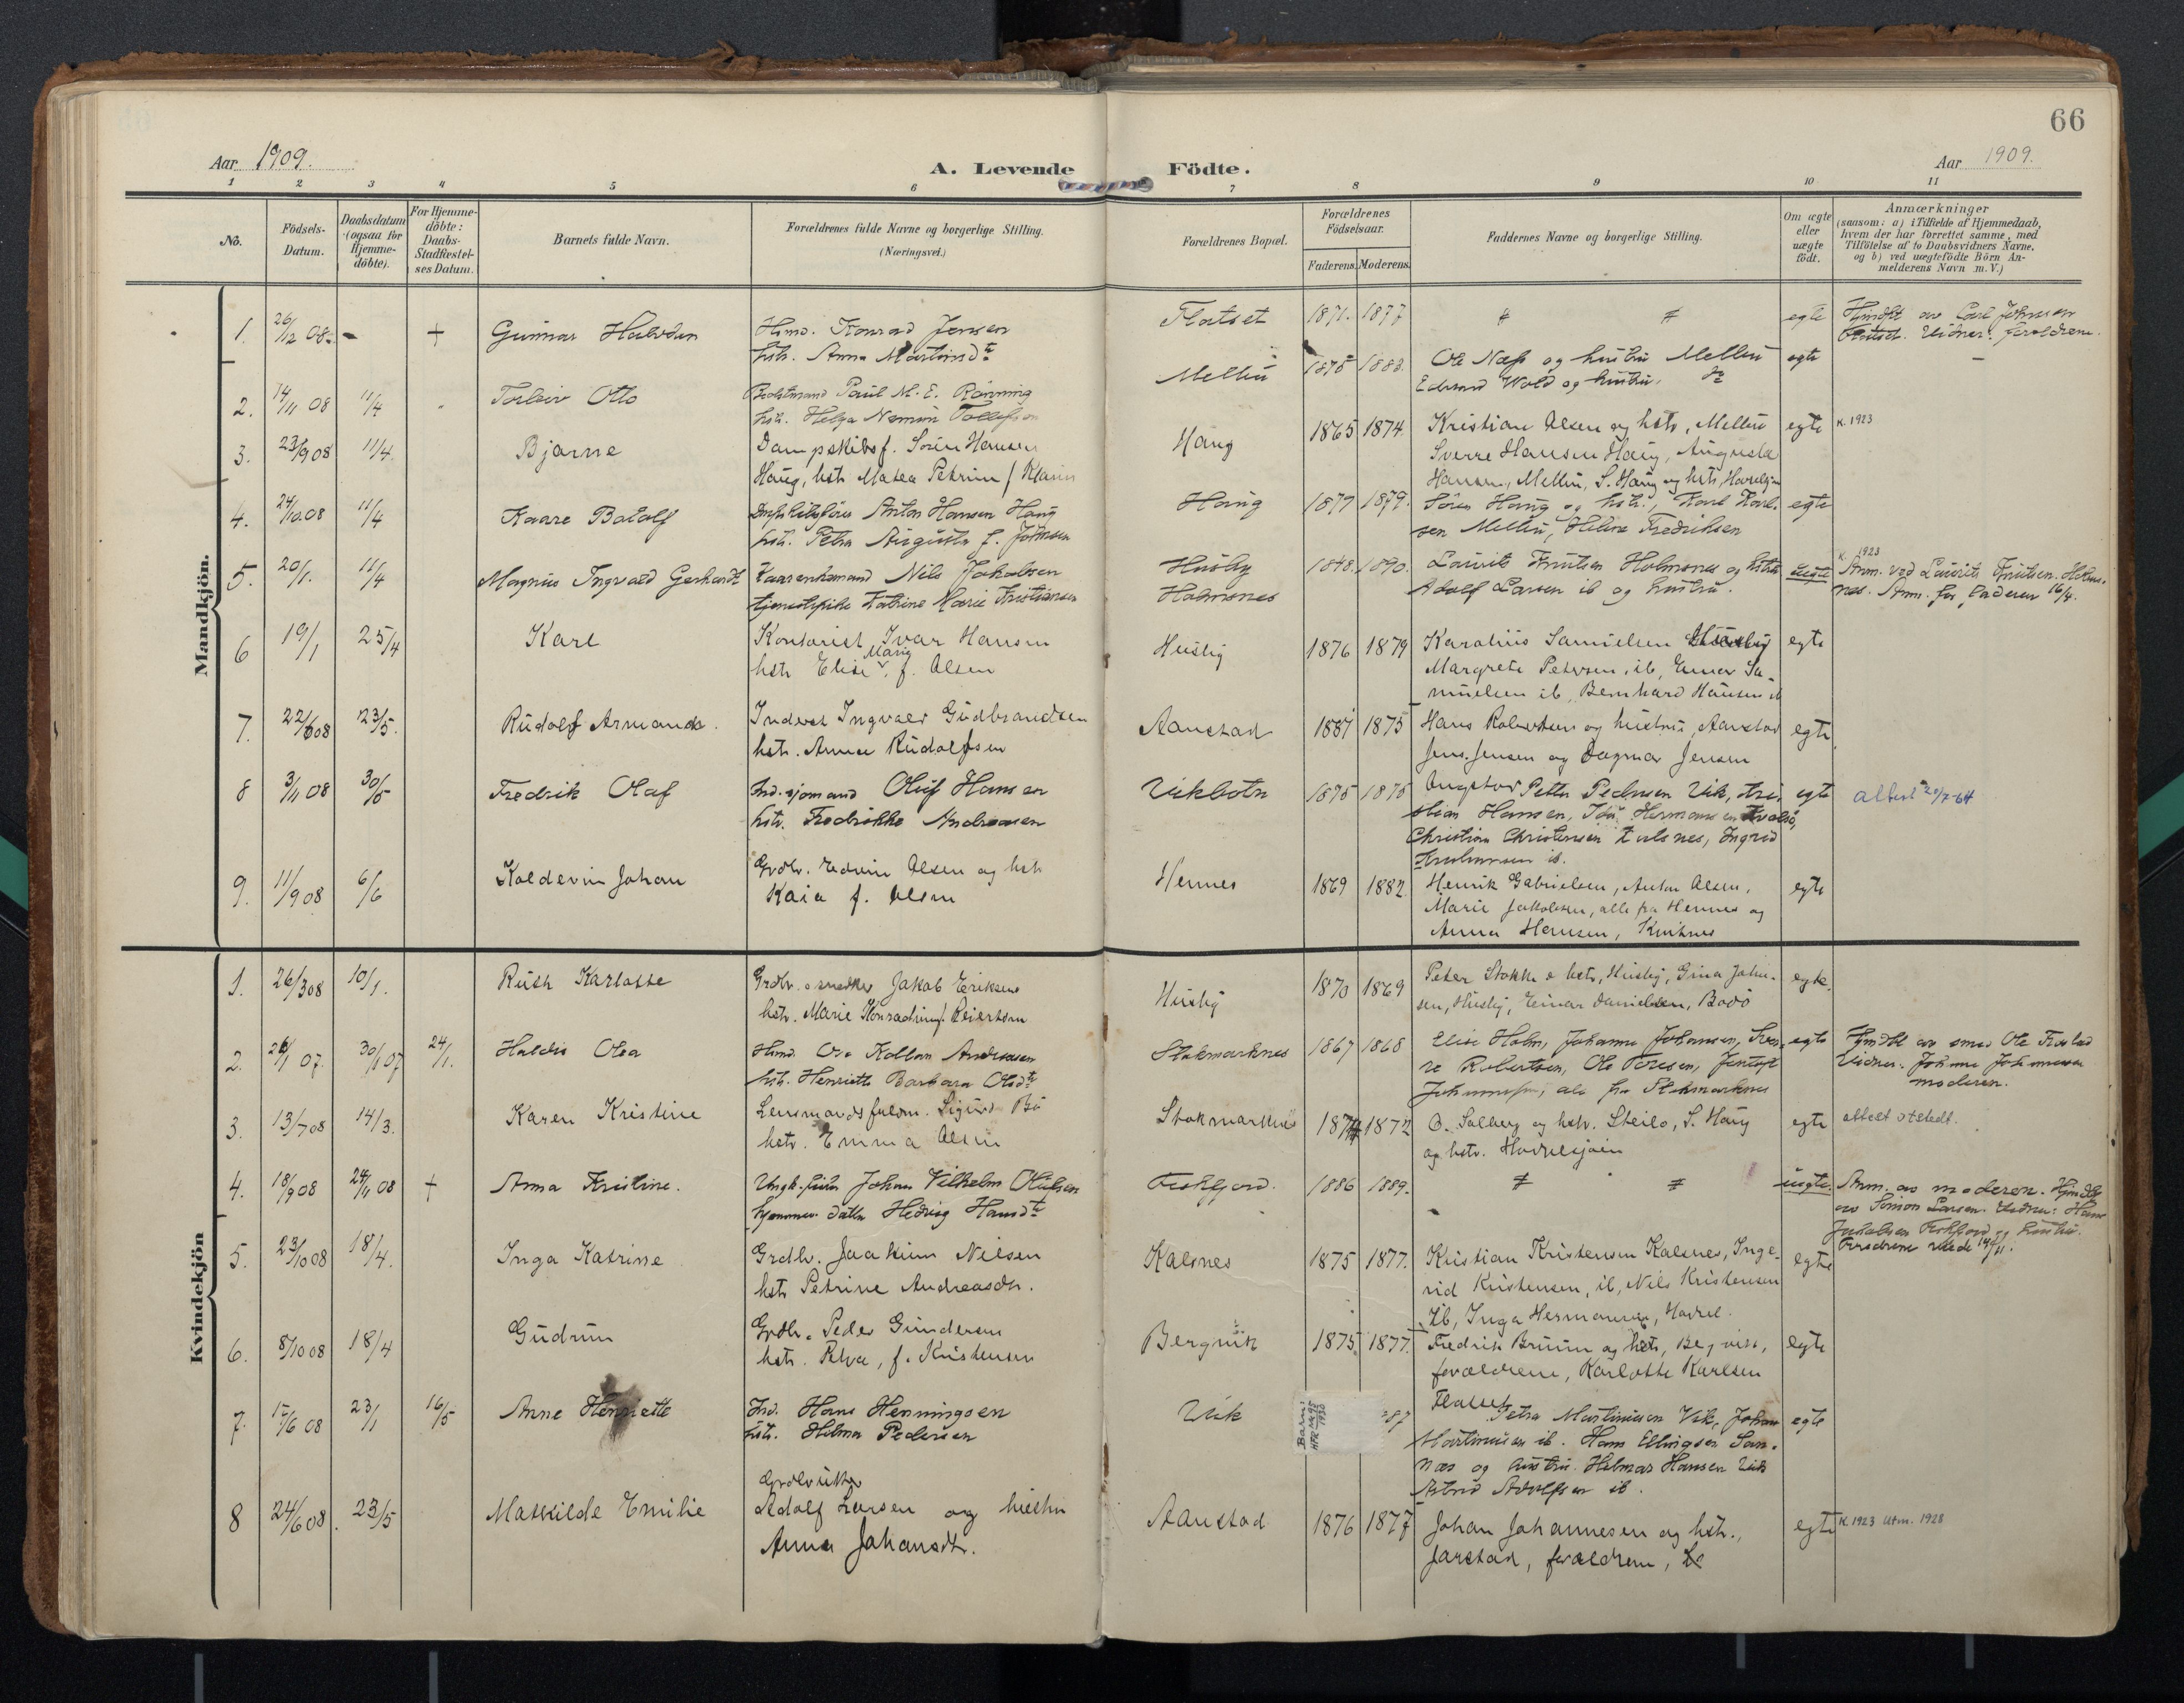 66
Aar 1909.
A. Levende Födte.
Aar 1909.
1 2 3 4 5 6 7 8 9 10 11
No.
Födsels-Datum.
Daabsdatum (ogsaa for Hjemme-döbte).
For Hjemme-döbte: Daabs-Stadfæstel-ses Datum.
Barnets fulde Navn.
Forældrenes fulde Navne og borgerlige Stilling. (Næringsvei.)
Forældrenes Bopæl.
Forældrenes Födselsaar.
Faderens. Moderens.
Faddernes Navne og borgerlige Stilling.
Om ægte eller uægte födt.
Anmærkninger
(saasom: a) i Tilfælde af Hjemmedaab,
hvem der har forrettet samme, med
Tilföielse af to Daabsvidners Navne,
og b) ved uægtefödte Börn An-
melderens Navn m. V.)
Mandkjön.
1. 26/12 08. - + Gunnar Halvdan
Hmd. Konrad Jensen
hstr. Anna Martinsdtr
Flatset 1871. 1877 egte
Hjmdbt av Carl Johnsen
Flatset. Vidner: foreldrene.
2. 14/11 08 11/4 Torleiv Otto
Paul M. E. Rönning
hstr. Helga
Melbu 1875 1883.
Ole Næss og hustru Melbu
Edvard Wold og hustru.
egte
3. 23/9 08 11/4. Bjarne
Dampskibsf. Sören Hansen
Haug, hstr Matea Petrine f
Haug 1865 1874.
Kristian Olsen og hstr, Melbu
Sverre Hansen Haug, Augusta
Hansen, Melbu, S. Haug og hstr,
egte K. 1923
4. 24/10.08 11/4 Kaare Botolf
Anton Hansen Haug
hstr. Petra Augusta f. Johnsen
Haug 1877 1879.
Sören Haug og hstr., Karl Karl-
sen Melbu, Helene Fredriksen
egte
5. 20/1. 11/4 Magnus Ingvald Gerhardt
Nils Jakobsen
tjenestepike Katrine Marie Kristiansen
Husby
Holmsnes
1848. 1890.
Laurits Knutsen Holmsnes og hstr
Adolf Larsen ib og hustru.
uegte
K. 1923
Anm. ved Laurits Knutsen Holms-
nes. Anm. for faderen 16/4.
6 19/1 25/4 Karl
Kontorist Ivar Hansen
hstr Elise Marig f. Olsen
Husby 1876 1879
Karolius Samuelsen Husby
Margrete Petersen, ib, Einar Sa-
muelsen ib, Bernhard Hansen ib
egte
7. 22/6 08 23/5. Rudolf Armand.
Inderst Ingvald Gudbrandsen
hstr. Anna Rudolfsen
Aanstad 1881 1875
Hans Robertsen og hustru, Aanstad
Jens Jensen og Dagmar Jensen
egte
8 3/11 08 30/5 Fredrik Olaf
Ind. sjömand Oluf Hansen
hstr. Fredrikke Andreasen
Vikbotn 1875 1875
Petter Pedersen Vik, Kri-
stian Hansen, Ida Hermansen
Christian Christensen Kalsnes, Ingrid
ib.
egte attest 20/7-64
9. 11/9 08 6/6 Koldevin Johan
Grdbr. Edvin Olsen og hstr
Kaia f. Olsen
Hennes 1869 1882.
Henrik Gabrielsen, Anton Olsen,
Marie Jakobsen, alle fra Hennes og
Anna Hansen,
egte
Kvindekjön
1. 26/3 08 10/1. Ruth Karlotte
Grdbr. o snedker Jakob Eriksen
hstr. Marie Konradine f. Reiersen
Husby 1870 1869
Peter Stokke o hstr, Husby, Gina Johan-
sen, Husby, Einar Danielsen, Bodö
egte.
2. 26/1 07. 30/1 07 24/1. Haldis Olea
Hmd. Ole Kolban Andreasen
hstr. Henriette Barbara Olsdtr
Stokmarknes 1867 1868
Elise Holm, Johanne Johansen,
Robertsen, Ole
Johannesen, alle fra Stokmarknes
egte
Hjmdbt av smed Ole
Vidner. Johanne Johannesen
moderen.
3. 13/7 08 14/3. Karen Kristine
Lensmandsfuldm. Sigurd Bö
hstr. Emma Olsen
Stokmarknes 1874 1872
O. Solberg og hstr. Steilo, S. Haug
og hstr.
egte attest utstedt.
4. 18/9 08 24/11 08 + Anna Kristine.
Ungk. fisker Johan Vilhelm Olufsen
hjemmev. datter Hedvig Hansdtr
Fiskfjord. 1886 1889. uegte.
Anm. av moderen. Hjmdbt
av Simon Larsen. Vidner: Hans
Jakobsen Fiskfjord og hustru.
5. 23/10 08 18/4. Inga Katrine
Grdbr. Joakim Nilsen
hstr Petrine Andreasdtr.
Kalsnes 1875 1877.
Kristian Kristensen Kalsnes, Inge-
rid Kristensen, ib, Nils Kristensen
ib, Inga Hermansen,
egte
6. 8/10 08 18/4 Gudrun
Grdbr. Peder Gundersen
hstr. Petra, f. Kristensen
Bergvik 1875 1877.
Fredrik Bruun og hstr, Bergvik,
forældrene, Karlotte Karlsen
Flatset
egte
7. 15/6 08 23/1 16/5 Anne Henriette
Ind. Hans Henningsen
hstr. Hilma Pedersen
Vik
87
Petra Martinusen Vik, Johan
Martinusen ib. Hans Ellingsen San-
næs og hustru. Hilmar Hansen Vik
Astrid Adolfsen ib.
egte
8 24/6 08. 23/5 Mathilde Emilie
Grdbruker
Adolf Larsen og hustru
Anna Johansdtr.
Aanstad 1876 1877
Johan Johannesen og hstr.,
Jarstad, forældrene,
egte K 1923 Utm. 1928